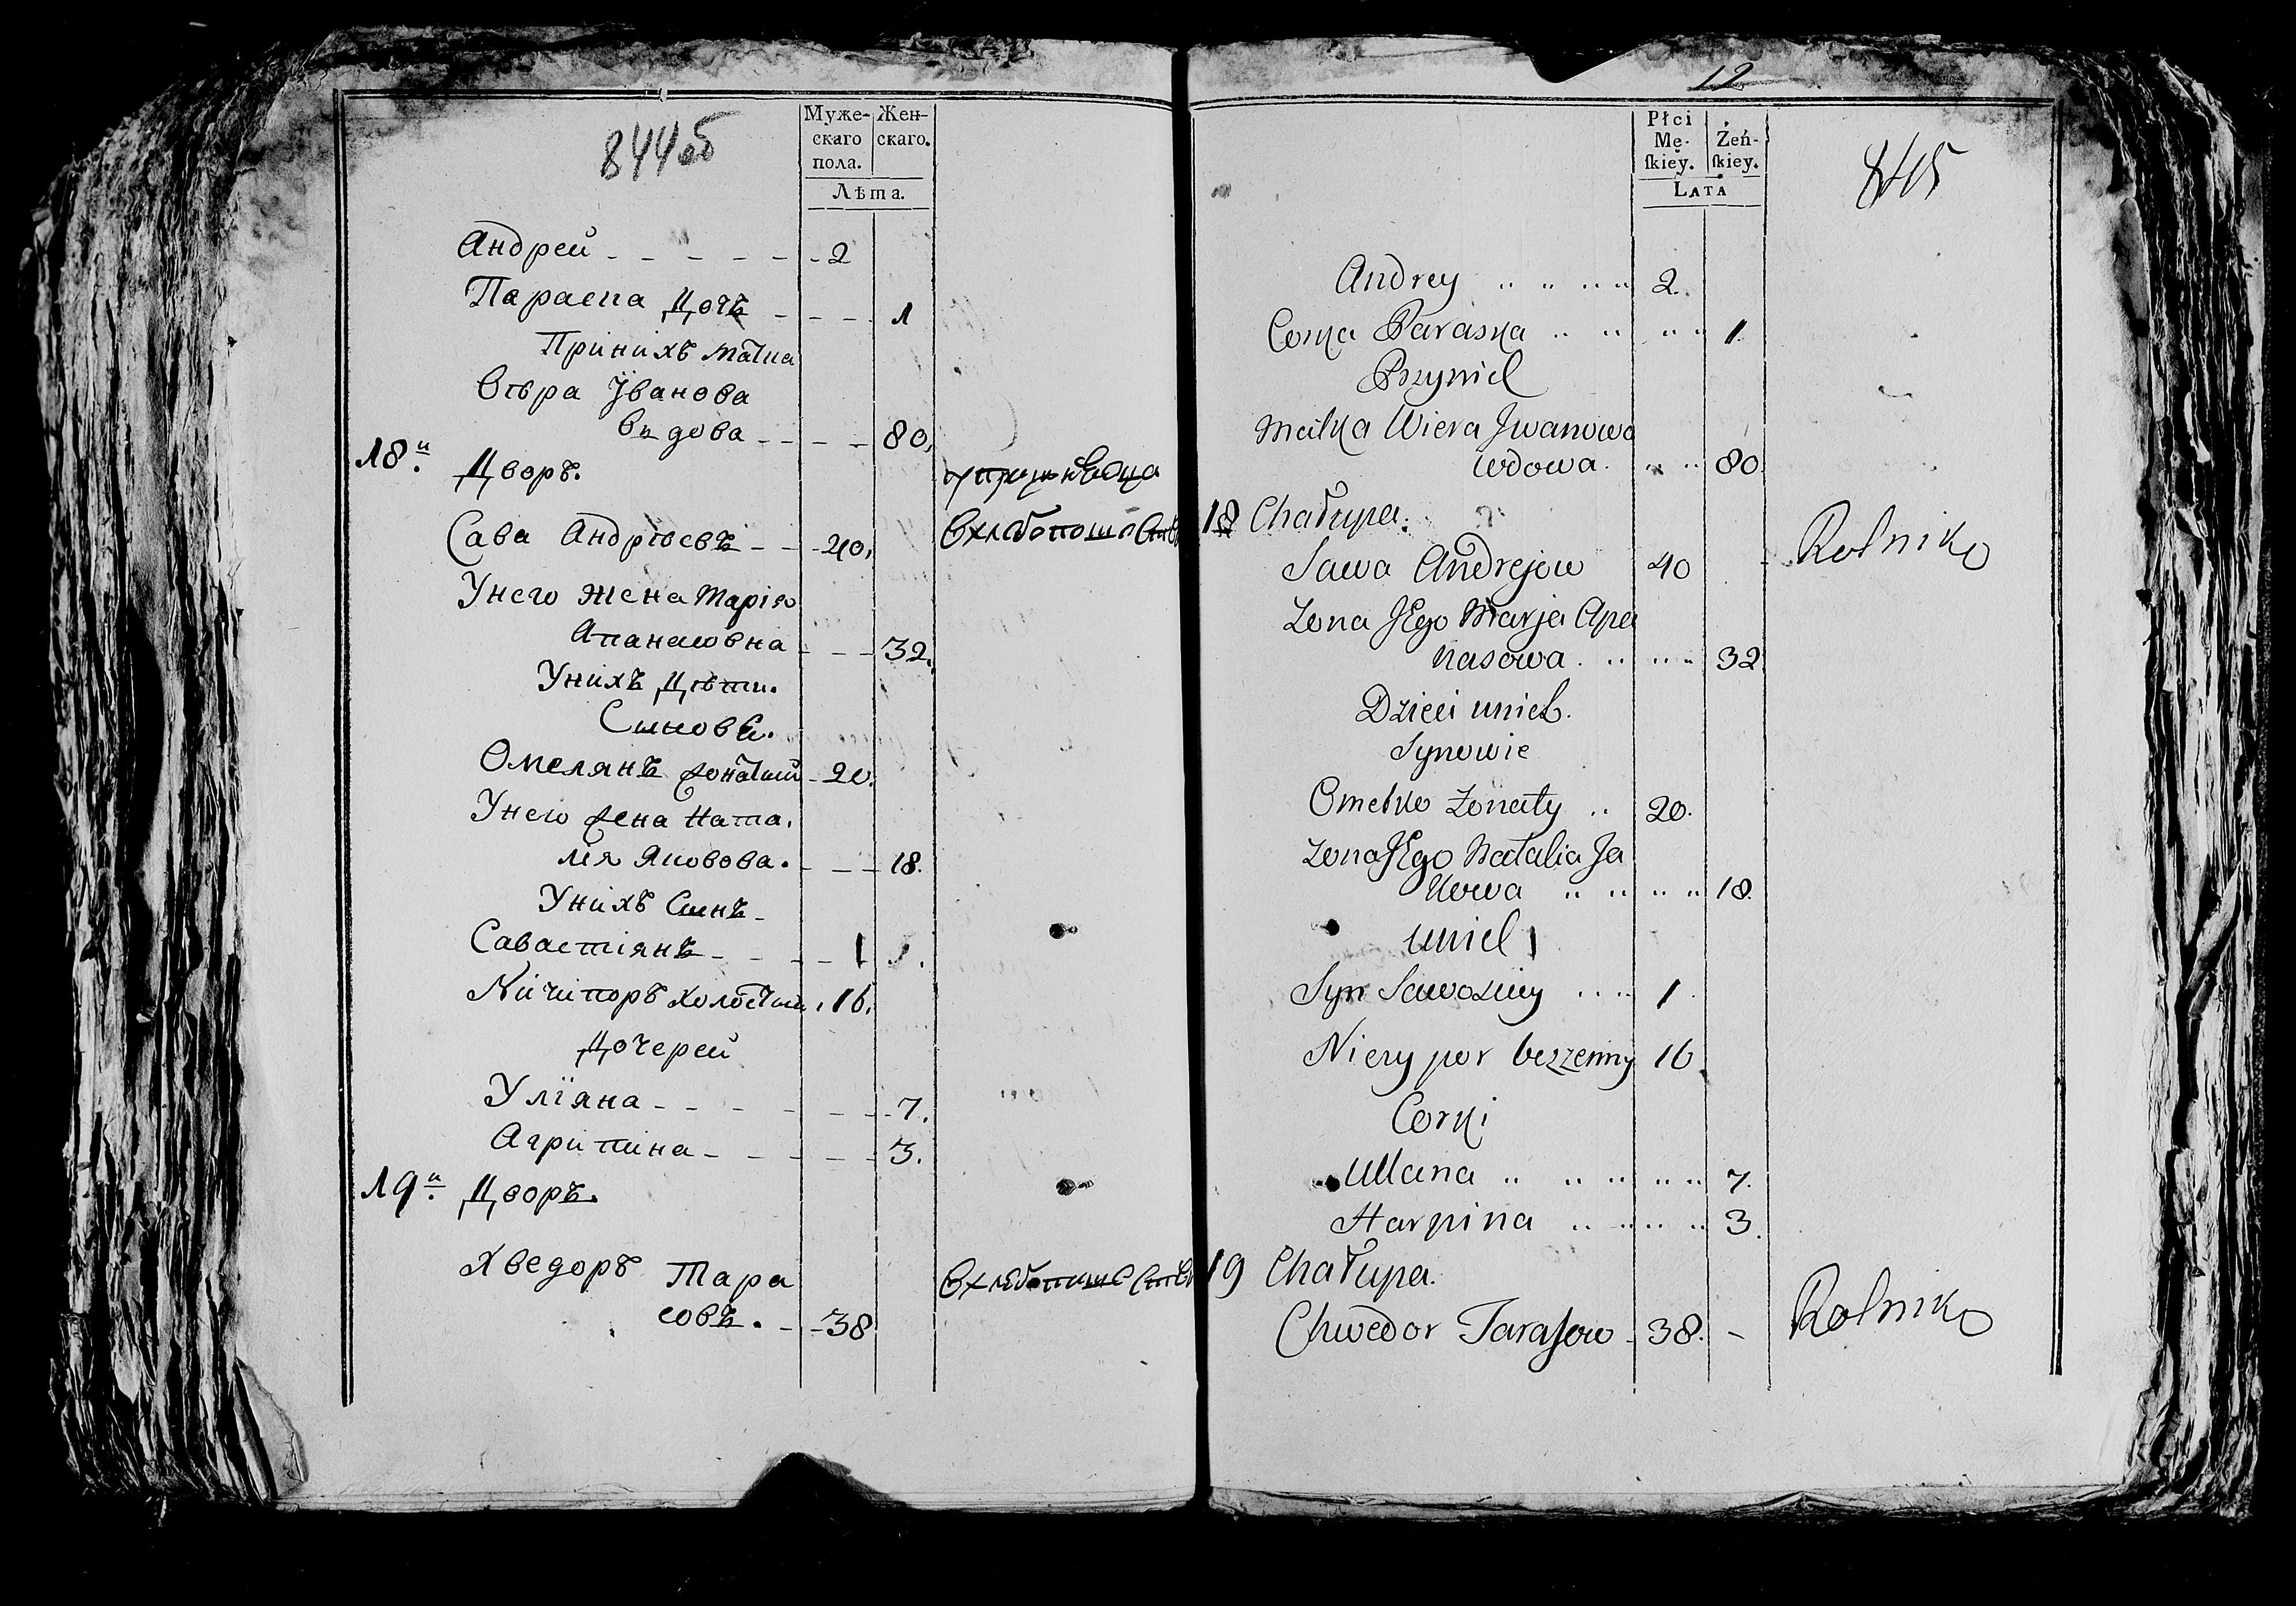 844об
Муже-
скаго
пола.
Жен-
скаго.
Лѣта.
Андрей 2
Параска Дочъ 1
Принихъ матка
Вѣра Ивановa
вдова 80.
18й Дворъ.
Сава Андрѣевъ 40.
Унего жена Марія
Апанасовна 32.
Унихъ Дѣти.
Синове.
Омелянъ женатий 20.
Унего жена Ната.
лія Яковова. 18.
Унихъ Синъ
Савастіянъ 1
Ничипоръ холостий 16.
Дочерей
Уліяна 7.
Агрипина 3.
19й Дворъ.
Хведоръ Тара
совъ. 38
12
845
Płci
Mę-
ſkiey.
Żeń-
ſkiey.
Lata
Andrey 2.
Corka Paraska 1
Przynich
Matka Wiera Jwanowa
wdowa. 80.
18 Chałupa.
Sawa Andrejow 40 Rolniko
Zona JEgo Marja Apa
nasowa. 32
Dzieci unich.
Synowie
Omelko Zonaty 20.
Zona JEgo Natalia Ja
kowa 18.
unich
Syn 1
Niczypor bezzenny 16
Corki
Ullana 7.
Harpina 3.
19 Chałupa.
Chwedor Taraſow 38. - Rolniko